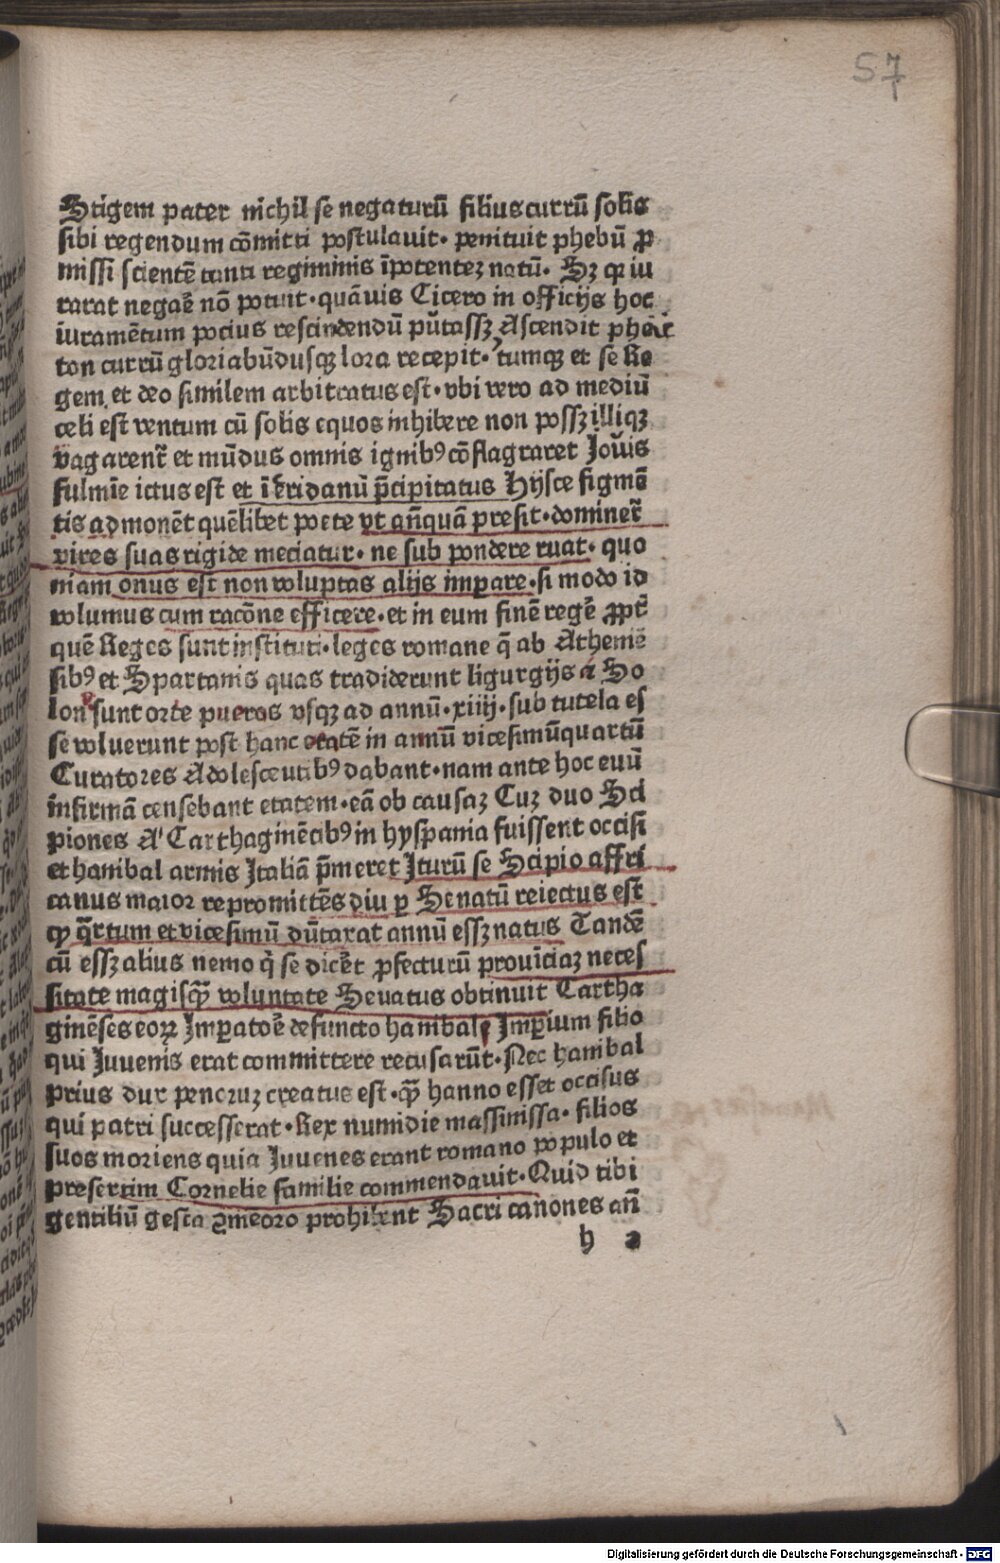 57
Stigem pater nichil se negaturū filius currū solis
sibi regendum cōmitti postulauit· penituit phebū ꝓ
missi scientē tanti regiminis īpotenteꝫ natū· Sꝫ qꝛ iu
rarat negaꝛē nō potuit·quāuis Cicero in officijs hoc
iuramētum pocius rescindendū putassꝫ Ascendit phae
ton currū gloriabūdusqꝫ lora recepit· tumqꝫ et se Re
gem et deo similem arbitratus est·vbi vero ad mediū
celi est ventum cū solis equos inhibere non possꝫ illiqꝫ
vagarent᷑ et mūdus omnis ignibꝰ cōflagraret Jouis
fulmīe ictus est et ī Eridanū p̄cipitatus Hijsce figmē
tis admonēt quēlibet poete vt an̄quā presit·dominet᷑
vires suas rigide meciatur· ne sub pondere ruat· quo
niam onus est non voluptas alijs imꝑare·si modo id
volumus cum racōne efficere·et in eum finē regē ꝓpt᷑
quē Reges sunt instituti·leges romane q̄ ab Atheniē
sibꝰ et Spartanis quas tradiderunt ligurgijs a So
lon sunt orte pueros vsqꝫ ad annū·xiiij·sub tutela es
se voluerunt post hanc etatē in annū vicesimūquartū
Curatores Adolescentibꝰ dabant·nam ante hoc euū
infirmā censebant etatem·eā ob causaꝫ Cuꝫ duo Sci
piones A Carthaginēcibꝰ in hyspania fuissent occisi
et hanibal armis Jtaliā p̄meret Jturū se Scipio affri
canus maior repromittēs diu ꝑ Senatū reiectus est
qꝛ qͣrtum et vicesimū dūtaxat annū essꝫ natus Tandē
cū essꝫ alius nemo qͥ se dicēt ꝓfecturū prouīciaꝫ neces
sitate magisqꝫ voluntate Seuatus obtinuit Cartha
ginēses eoꝝ Jmꝑatoꝛē defuncto hanibale Jmꝑium filio
qui Juuenis erat committere recusarūt·Nec hanibal
prius dux penoruꝫ creatus est·qꝫ hanno esset occisus
qui patri successerat·Rex numidie massinissa· filios
suos moriens quia Juuenes erant romano populo et
presertim Cornelie familie commendauit·Quid tibi
gentiliū gesta ꝯmemoro prohibent Sacri canones an̄
h 2
Digitalisierung gefördert durch die Deutsche Forschungsgemeinschaft · DFG